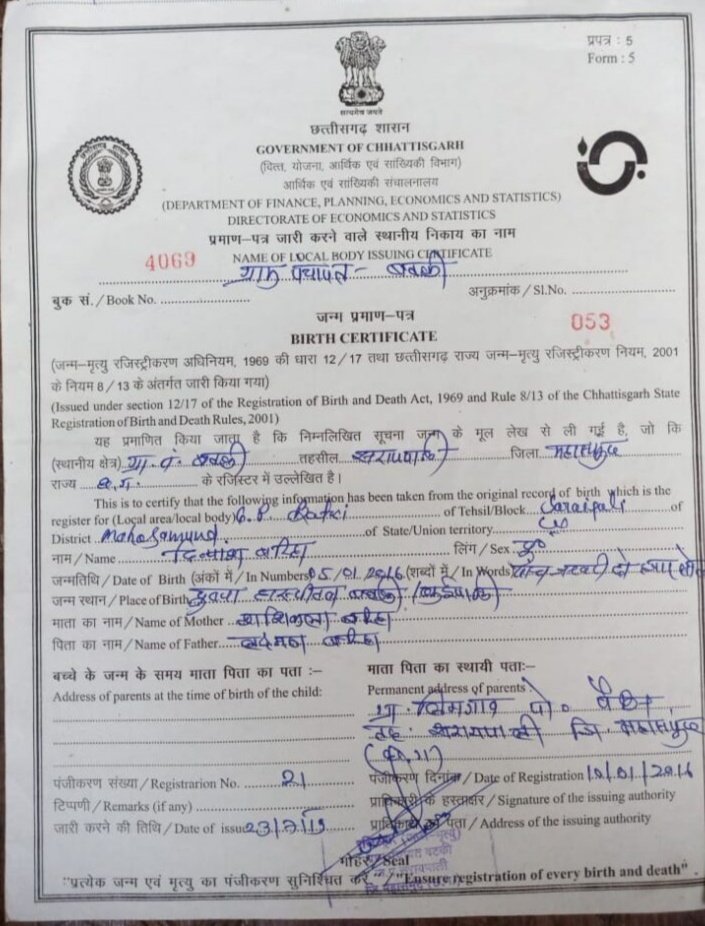 प्रपत्र : 5
Form : 5
सत्यमेव जयते
छत्तीसगढ़ शासन
GOVERNMENT OF CHHATTISGARH
(वित्त, योजना, आर्थिक एवं सांख्यिकी विभाग)
आर्थिक एवं सांख्यिकी संचालनालय
(DEPARTMENT OF FINANCE, PLANNING, ECONOMICS AND STATISTICS)
DIRECTORATE OF ECONOMICS AND STATISTICS
प्रमाण-पत्र जारी करने वाले स्थानीय निकाय का नाम
4069 NAME OF LOCAL BODY ISSUING CERTIFICATE
ग्राम पंचायत -
बुक सं. / Book No. अनुक्रमांक / Sl.No.
जन्म प्रमाण-पत्र 053
BIRTH CERTIFICATE
(जन्म-मृत्यु रजिस्ट्रीकरण अधिनियम, 1969 की धारा 12/17 तथा छत्तीसगढ़ राज्य जन्म-मृत्यु रजिस्ट्रीकरण नियम, 2001
के नियम 8/13 के अंतर्गत जारी किया गया)
(Issued under section 12/17 of the Registration of Birth and Death Act, 1969 and Rule 8/13 of the Chhattisgarh State
Registration of Birth and Death Rules, 2001)
यह प्रमाणित किया जाता है कि निम्नलिखित सूचना जन्म के मूल लेख से ली गई है, जो कि
(स्थानीय क्षेत्र) ग्रा. पं. तहसील सरायपाली जिला महासमुन्द
राज्य छ.ग. के रजिस्टर में उल्लेखित है।
This is to certify that the following information has been taken from the original record of birth which is the
register for (Local area/local body) G.P. Batki of Tehsil/Block Saraipali of
District Mahasamund of State/Union territory
नाम / Name लिंग / Sex पु०
जन्मतिथि / Date of Birth (अंकों में / In Numbers 05/01/2016 (शब्दों में / In Words) पांच जनवरी दो हजार
जन्म स्थान / Place of Birth
माता का नाम / Name of Mother
पिता का नाम / Name of Father
बच्चे के जन्म के समय माता पिता का पता :- माता पिता का स्थायी पताः-
Address of parents at the time of birth of the child: Permanent address of parents :
ग्रा. लिमगांव पो०
तह. सरायपाली जि. महासमुन्द
(छ.ग)
पंजीकरण संख्या / Registrarion No. 21 पंजीकरण दिनांक / Date of Registration 10/01/2016
टिप्पणी / Remarks (if any) प्राधिकारी के हस्ताक्षर / Signature of the issuing authority
जारी करने की तिथि / Date of issue प्राधिकारी का पता / Address of the issuing authority
मोहर / Seal
"प्रत्येक जन्म एवं मृत्यु का पंजीकरण सुनिश्चित करें" / "Ensure registration of every birth and death"